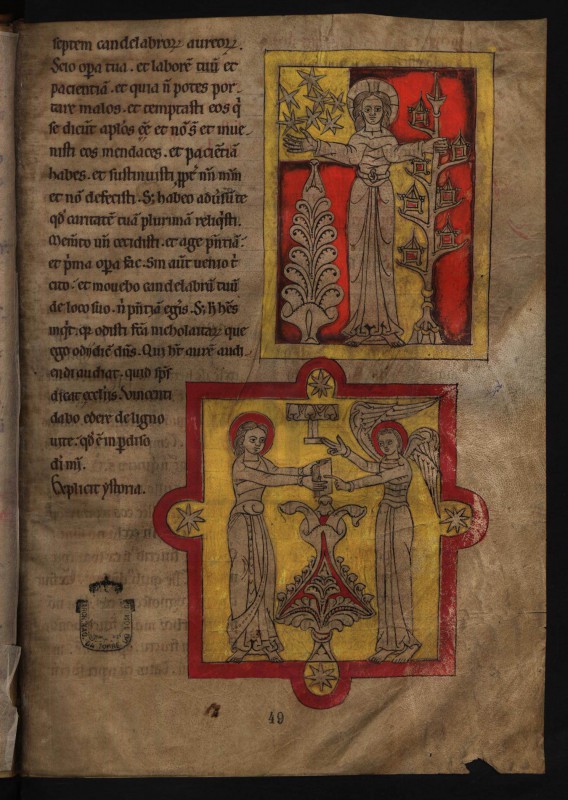 septem candelabroꝝ aureoꝝ.
Scio opa tua. et laborē tuū et
pacientiā. et quia ñ potes por-
tare malos. et temptasti eos q̇
se dicūt aplōs eē et nō s̄ et inue-
nisti eos mendaces. et pacientiā
habes. et sustinuisti ꝓpt̄ nm̄
et nō defecisti. S; habeo aduersū te
qd̄ caritatē tuā
et age pn̄tiā.
et pma opa fac. Sin aūt uenio t̄
cito. et mouebo candelabrū tuū
de loco suo. n̄ pn̄tiā egis. S; h̄ hēs
odisti fc̄a nicholaitaꝝ que
ego odi dic̄ dn̄s. Qui ht̄ aurē audi
endi audiat. quid sp̄s
dicat ecclīis. Vincenti
dabo edere de ligno
uite. qd̄ ē in padiso
dī mī.
Explicit ystoria.
49